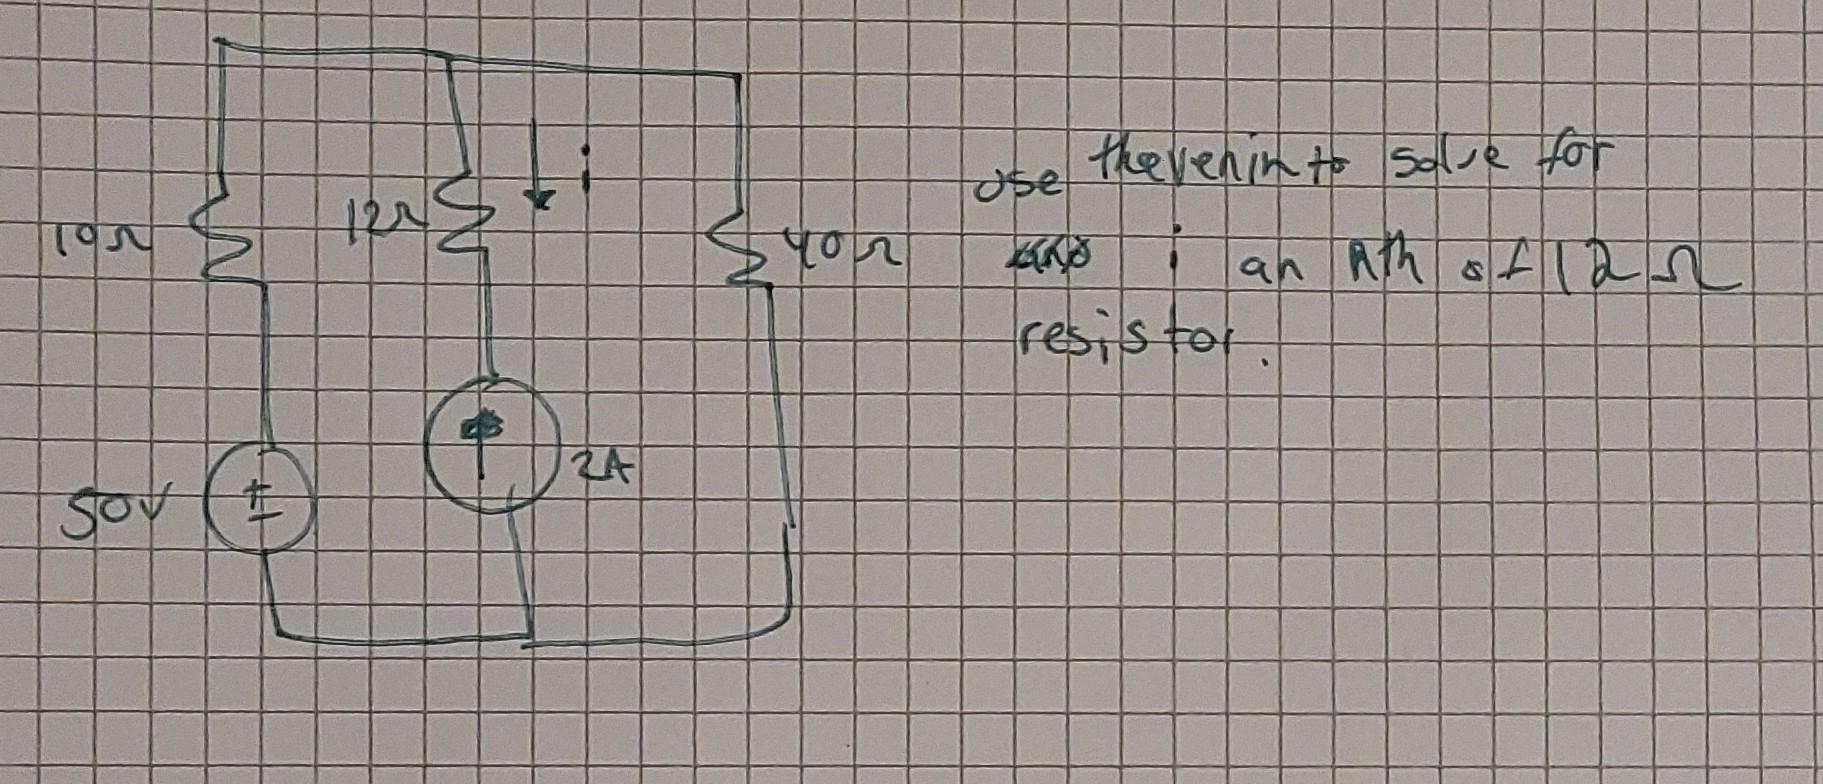 10Ω
12Ω
i
40Ω
50V
+
-
2A
use thevenin to solve for
i an Rth of 12Ω
resistor.